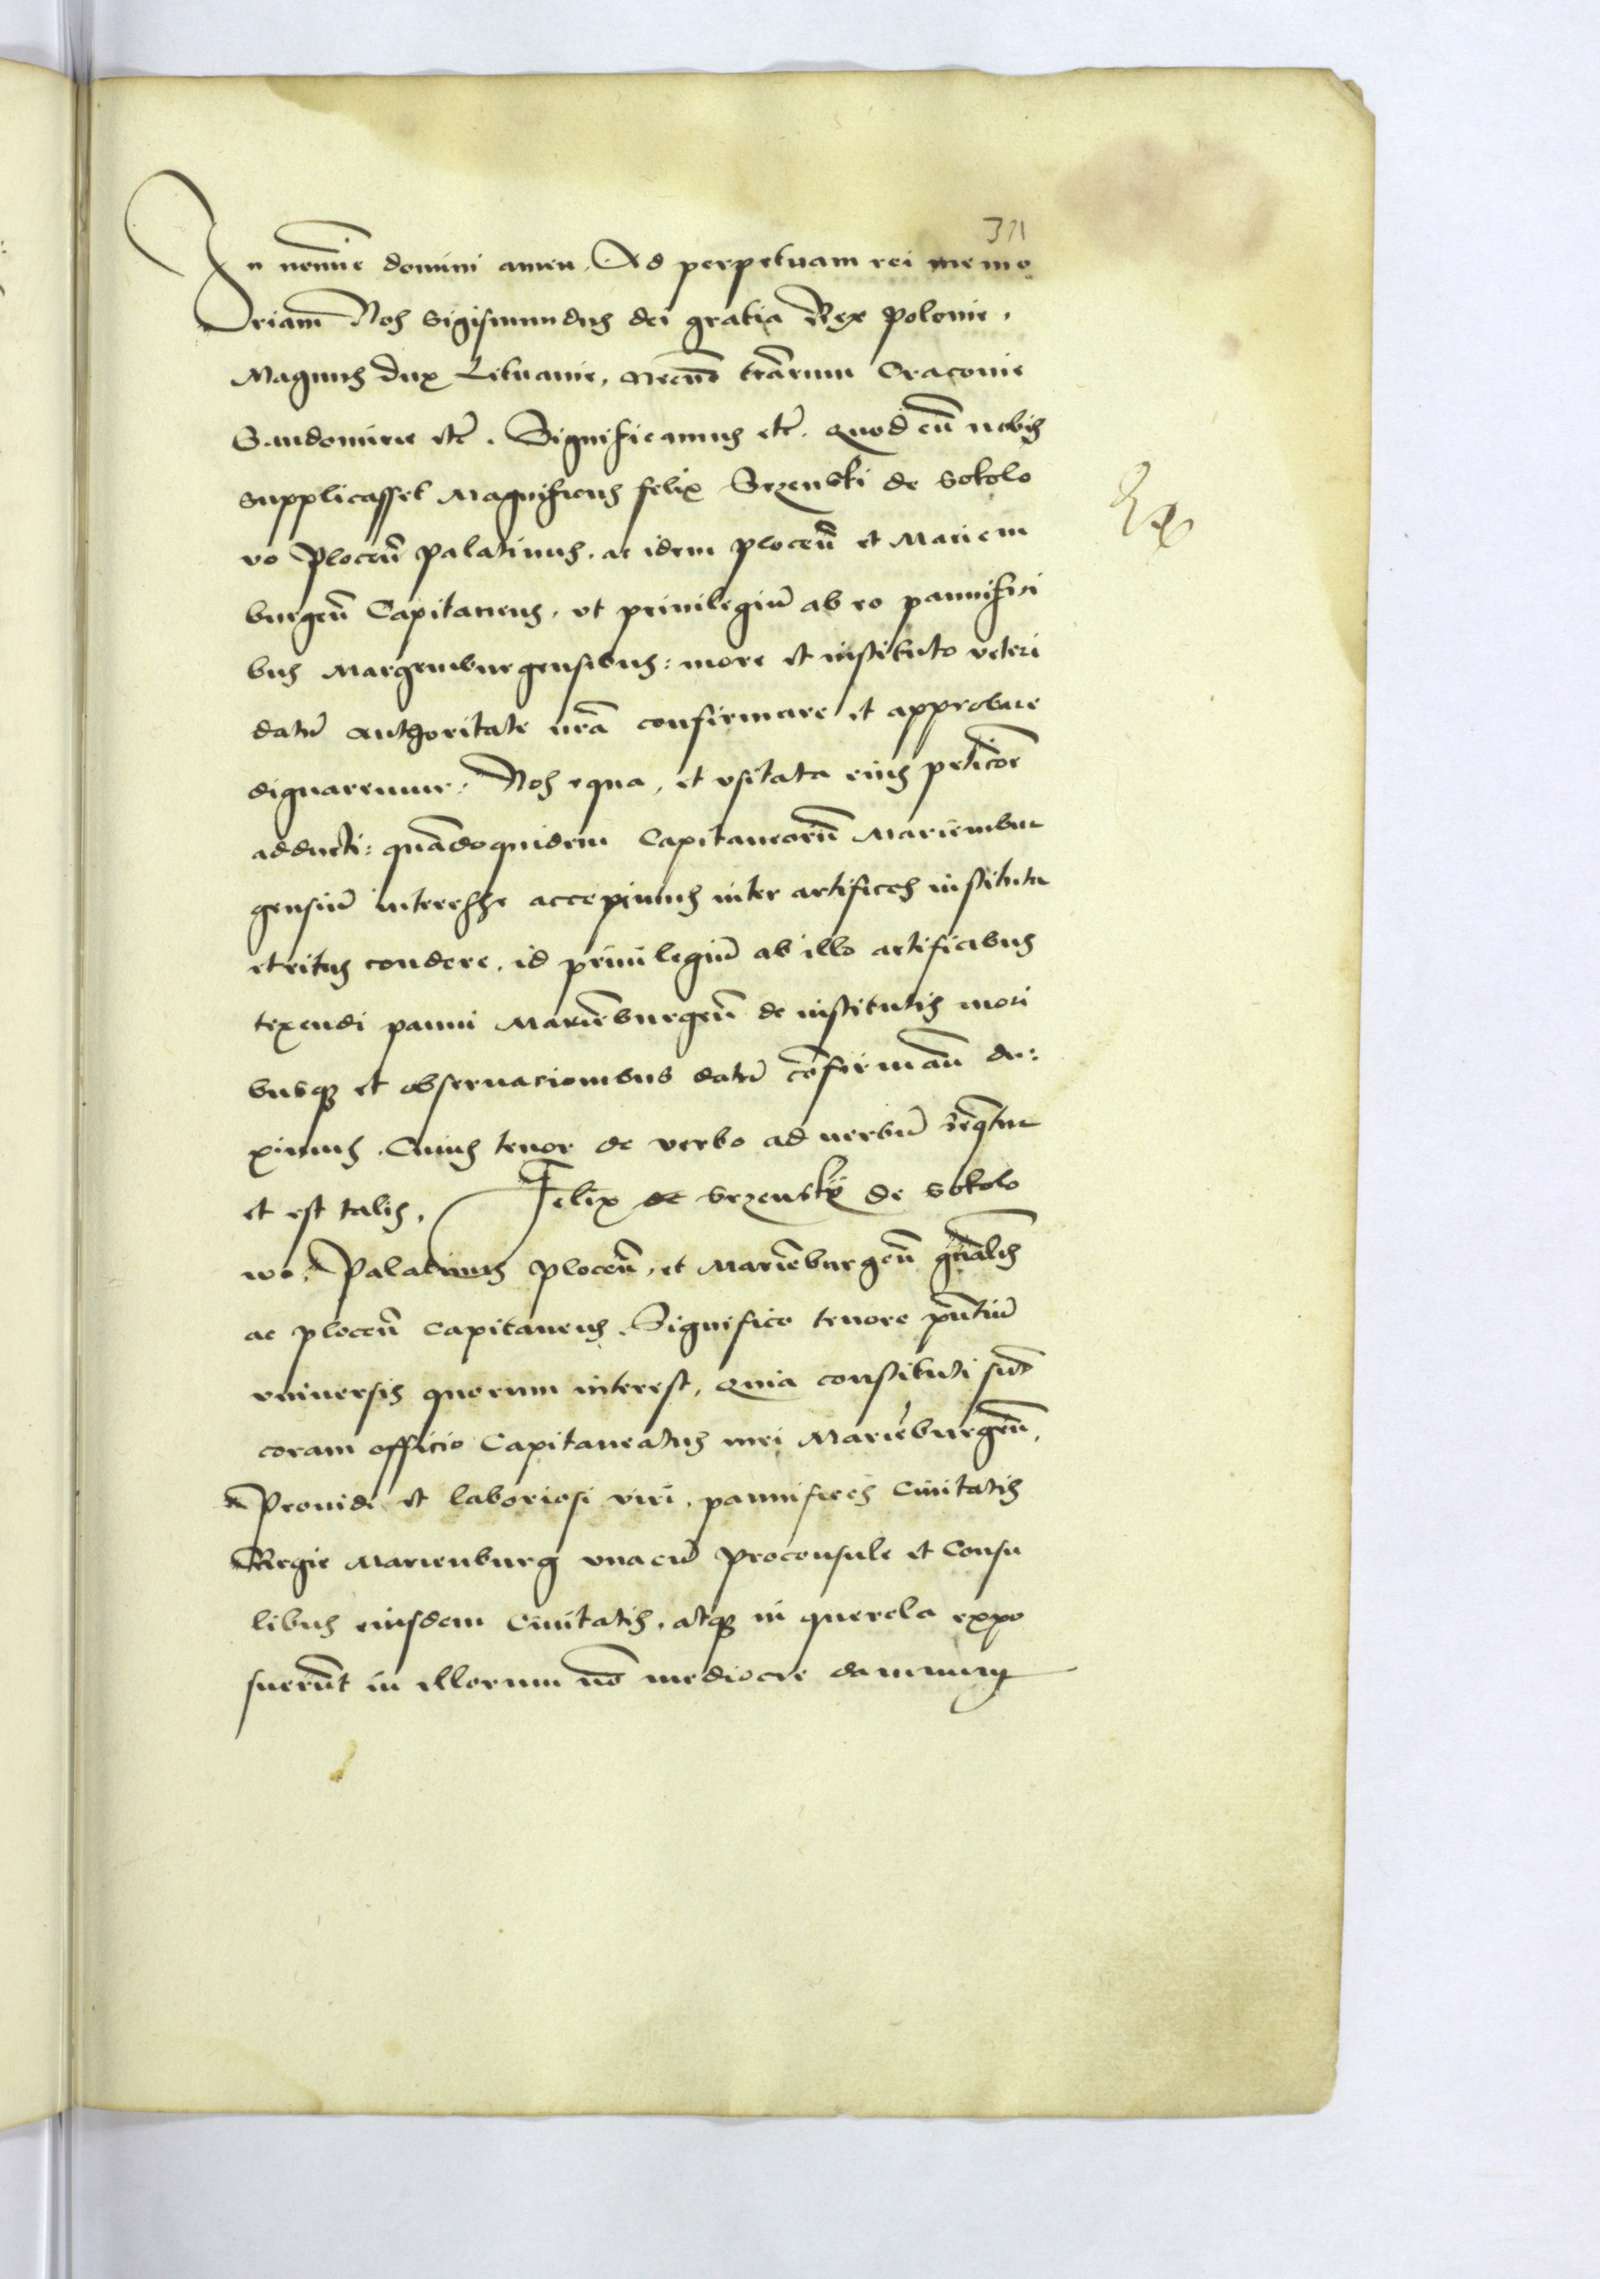 371
In nomīe domini amen. Ad perpetuam rei memo
riam Nos Sigismundus dei gratia Rex polonie.
Magnus dux Lituanie, necnō trārum Cracovie
Sandomirie etc̄. Significamus etc̄. quod cū nobis
supplicasset Magnificus felix Srzenski de Sokolo
vo Plocen̄ palatinus. ac idem plocen̄ et Mariem
burgen̄ Capitaneus, vt privilegiū ab eo pannifici
bus Margemburgensibus: more et instituto veteri
datū authoritate nrā confirmare et approbare
dignaremur. Nos equa, et vsitata eius peticōe
adducti: quādoquidem Capitaneorū Mariembur
gensiū interesse accepimus inter artifices instituta
et ritus condere, id privilegiū ab illo artificibus
texendi panni Mariēburgen̄ de institutis mori
busq; et observacionibus datū cōfirmān̄ du:
ximus. Cuius tenor de verbo ad verbū seq̄tur
et est talis. Felix de Srzensky de Sokolo
wo. Palatinus plocen̄, et Mariēburgen̄ gn̄alis
ac plocen̄ Capitaneus. Significo tenore pn̄tiū
vniversis quorum interest, quia constituti sūt
coram officio Capitaneatus mei Mariēburgen̄,
Providi et laboriosi viri, pannifices Civitatis
Regie Marienburg vnacū proconsule et Consu
libus eiusdem Civitatis, atq; in querela expo
suerūt in illorum nō mediocre damnum